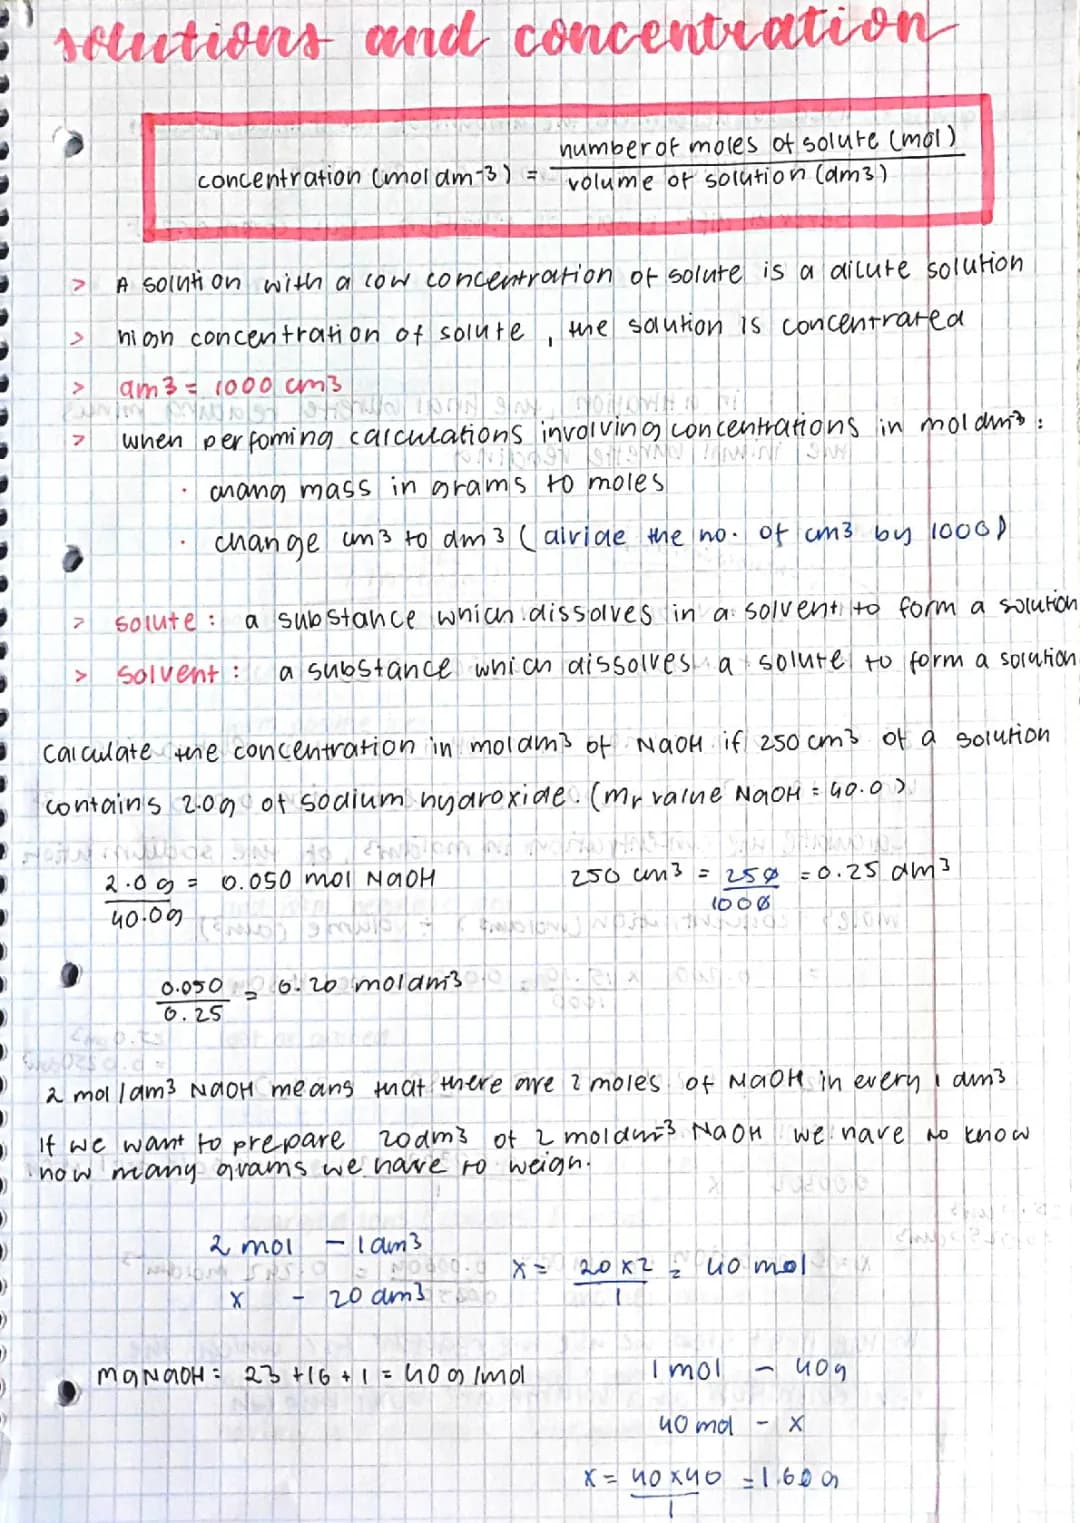 solutions and concentration
number of moles of solute (mol)
concentration (mol dm-3) = volume of solution (dm3)
> A solution with a low concentration of solute is a dilute solution
> high concentration of solute, the solution is concentrated
> dm3 = 1000 cm3
> when perfoming calculations involving concentrations in mol dm-3 :
· chang mass in grams to moles
· change cm3 to dm3 (divide the no. of cm3 by 1000)
> solute : a substance which dissolves in a solvent to form a solution
> solvent : a substance which dissolves a solute to form a solution
Calculate the concentration in mol dm-3 of NaOH if 250 cm3 of a solution
contains 2.0g of sodium hydroxide. (mr value NaOH = 40.0)
2.0 g = 0.050 mol NaOH 250 cm3 = 250 = 0.25 dm3
40.0g 1000
0.050 = 0.20 mol dm-3
0.25
2 mol / dm3 NaOH means that there are 2 moles of NaOH in every 1 dm3
If we want to prepare 20dm3 of 2 mol dm-3 NaOH we have to know
how many grams we have to weigh.
2 mol - 1 dm3
x = 20 x 2 = 40 mol
x - 20 dm3 1
mgNaOH = 23 + 16 + 1 = 40 g /mol 1 mol - 40g
40 mol - x
x = 40 x 40 = 1.60 g
1